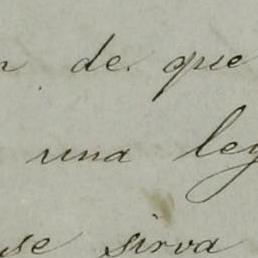 de que
una ley
se sirva